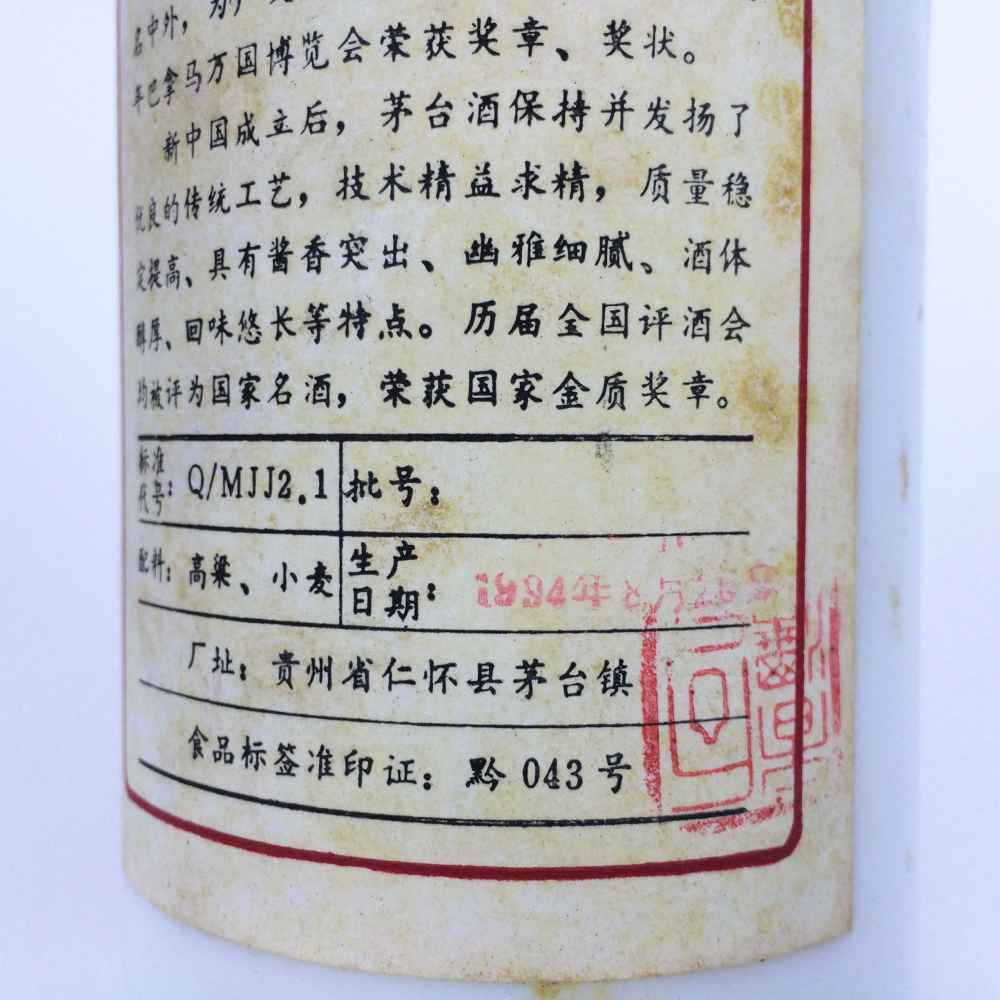 名中外，为
年巴拿马万国博览会荣获奖章、奖状。
新中国成立后，茅台酒保持并发扬了
优良的传统工艺，技术精益求精，质量稳
定提高、具有酱香突出、幽雅细腻、酒体
醇厚、回味悠长等特点。历届全国评酒会
均被评为国家名酒，荣获国家金质奖章。
标准代号：Q/MJJ2.1 批号：
配料：高粱、小麦 生产日期：1994年
厂址：贵州省仁怀县茅台镇
食品标签准印证：黔043号